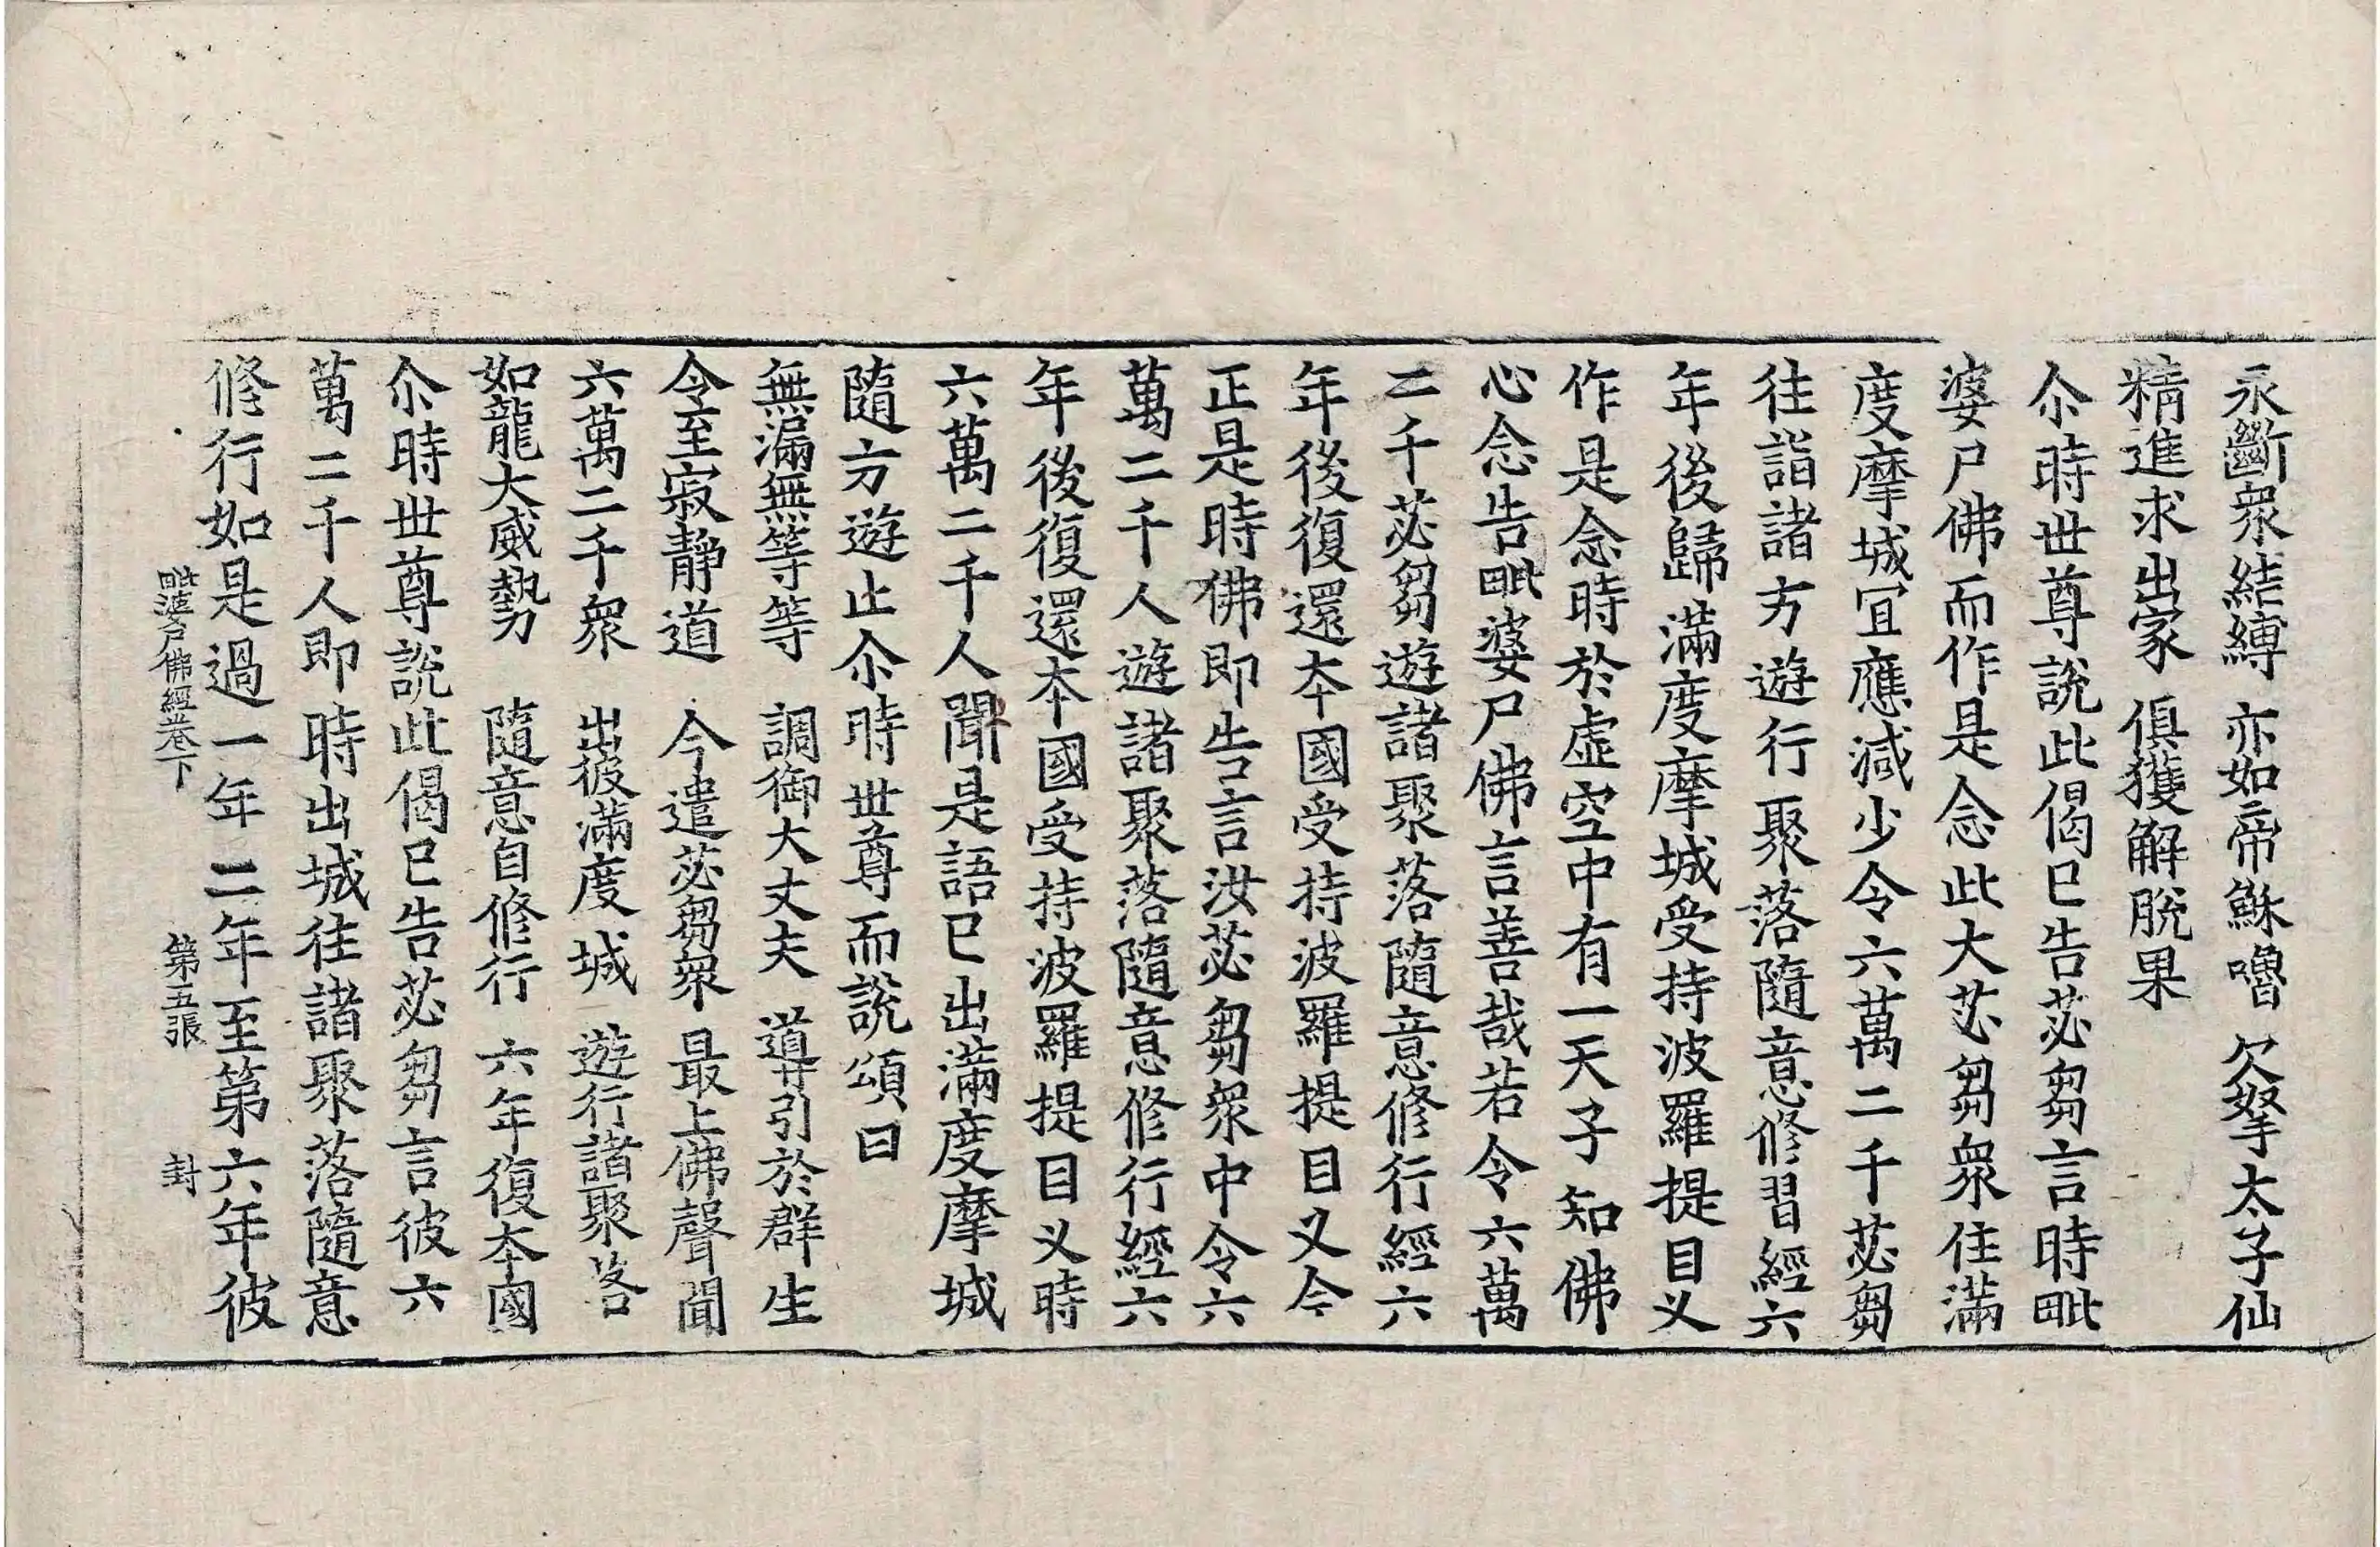 永斷衆結縛 亦如帝穌嚕 欠拏太子仙
精進求出家 俱獲解脫果
尒時世尊說此偈已告苾芻言時毗
婆尸佛而作是念此大苾芻衆住滿
度摩城冝應減少令六萬二千苾芻
往詣諸方遊行聚落隨意修習經六
年後歸滿度摩城受持波羅提目叉
作是念時於虛空中有一天子知佛
心念告毗婆尸佛言善哉若令六萬
二千苾芻遊諸聚落隨意修行經六
年後復還本國受持波羅提目叉今
正是時佛即告言汝苾芻衆中令六
萬二千人遊諸聚落隨意修行經六
年後復還本國受持波羅提目叉時
六萬二千人聞是語已出滿度摩城
隨方遊止尒時世尊而說頌曰
無漏無等等 調御大丈夫 導引於群生
令至寂靜道 今遣苾芻衆 最上佛聲聞
六萬二千衆 出彼滿度城 遊行諸聚落
如龍大威勢 隨意自修行 六年復本國
尒時世尊說此偈已告苾芻言彼六
萬二千人即時出城往諸聚落隨意
修行如是過一年二年至第六年彼
毗婆尸佛經卷下 第五張 封